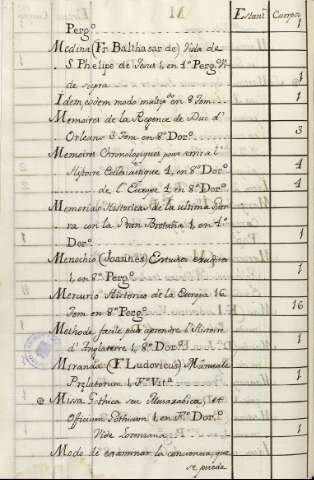 M Estant.e Cuerpo.s
Perg.o 1
Medina (Fr. Balthasar de) Vida de
S. Phelipe de Jesus 1, en 4.o Perg.o Vi
de supra 1
Idem, eodem modo en 8 Tom. 1
Memoires de la Regence de Duc d'
Orleans 3 Tom en 8.o Dor.o 3
Memoires Chronologiques pour servir a l'
Histoire Ecclesiastique 4, en 8.o Dor.o 4
de l'Europe 4 en 8.o Dor.o 4
Memorias Historicas de la ultima Guer
ra con la Gran Bretaña 1, en 4.o
Dor.o 1
Menochio (Joannes)
1, en 8.o Perg.o 1
Mercurio Historico de la Europa 16
Tom en 8.o Perg.o 16
Methode facile pour aprendre l'Histoire
d'Angleterre 1, 8.o Dor.o 1
Miranda (F. Ludovicus) Manuale
Prelatorum 1, F.o Vit.a 1
Missa Gothica seu Mozarabica, et
Officium Gothicum 1, en F.o Dor.o
Vide Lorenzana 1
Modo de examinar la conciencia, que
se puede